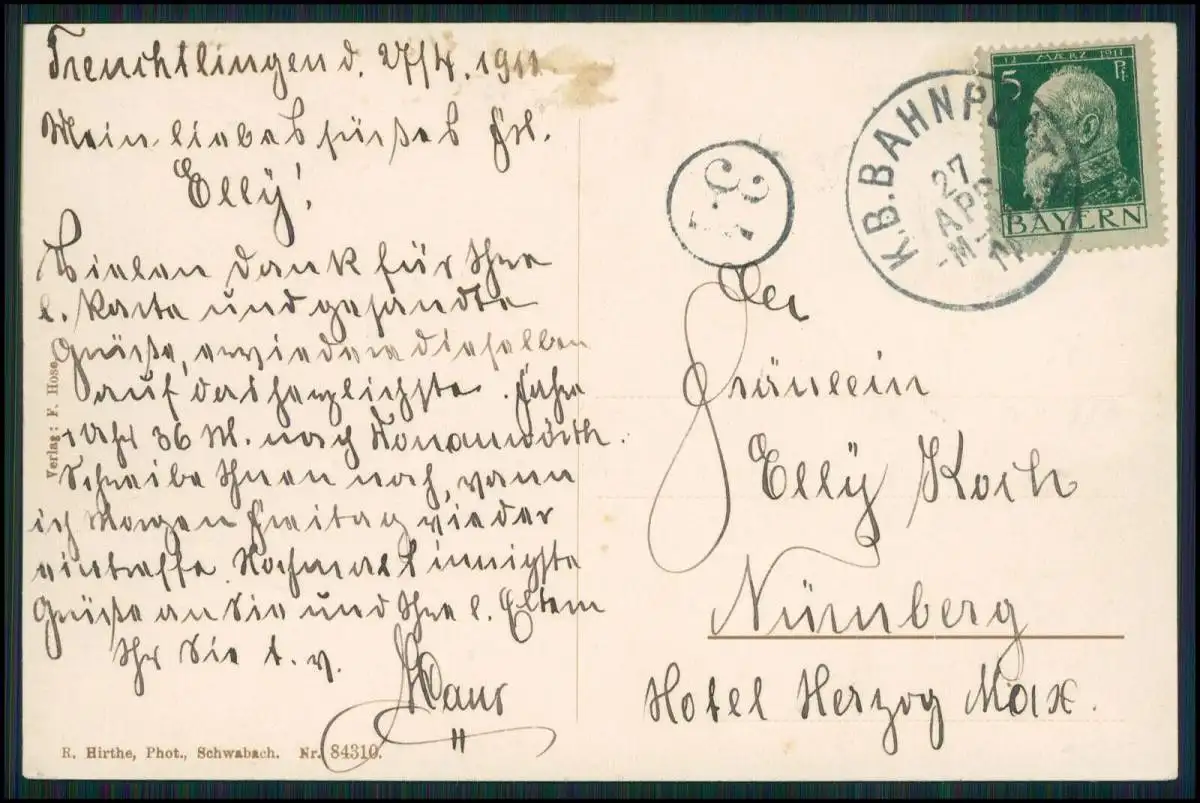 Treuchtlingen d. 27/4. 1911
Mein liebes süßes Frl.
Elly!
Vielen Dank für Ihre
l. Karte und gesandte
Grüße, erwiedere dieselben
auf das herzlichste. Fahre
1 Uhr 36 M. nach Donauwörth.
Schreibe Ihnen noch, wann
ich Morgen Freitag wieder
eintreffe. Nochmals innigste
Grüße an Sie und Ihre l. Eltern
Ihr Sie t. v.
Hans
Verlag: F. Hose
R. Hirthe, Phot., Schwabach. Nr. 84310.
12 MÄRZ 1911
5 Pf
BAYERN
K.B.BAHNPOST
27
APR
11
32
Fräulein
Elly Koch
Nürnberg
Hotel Herzog Max.